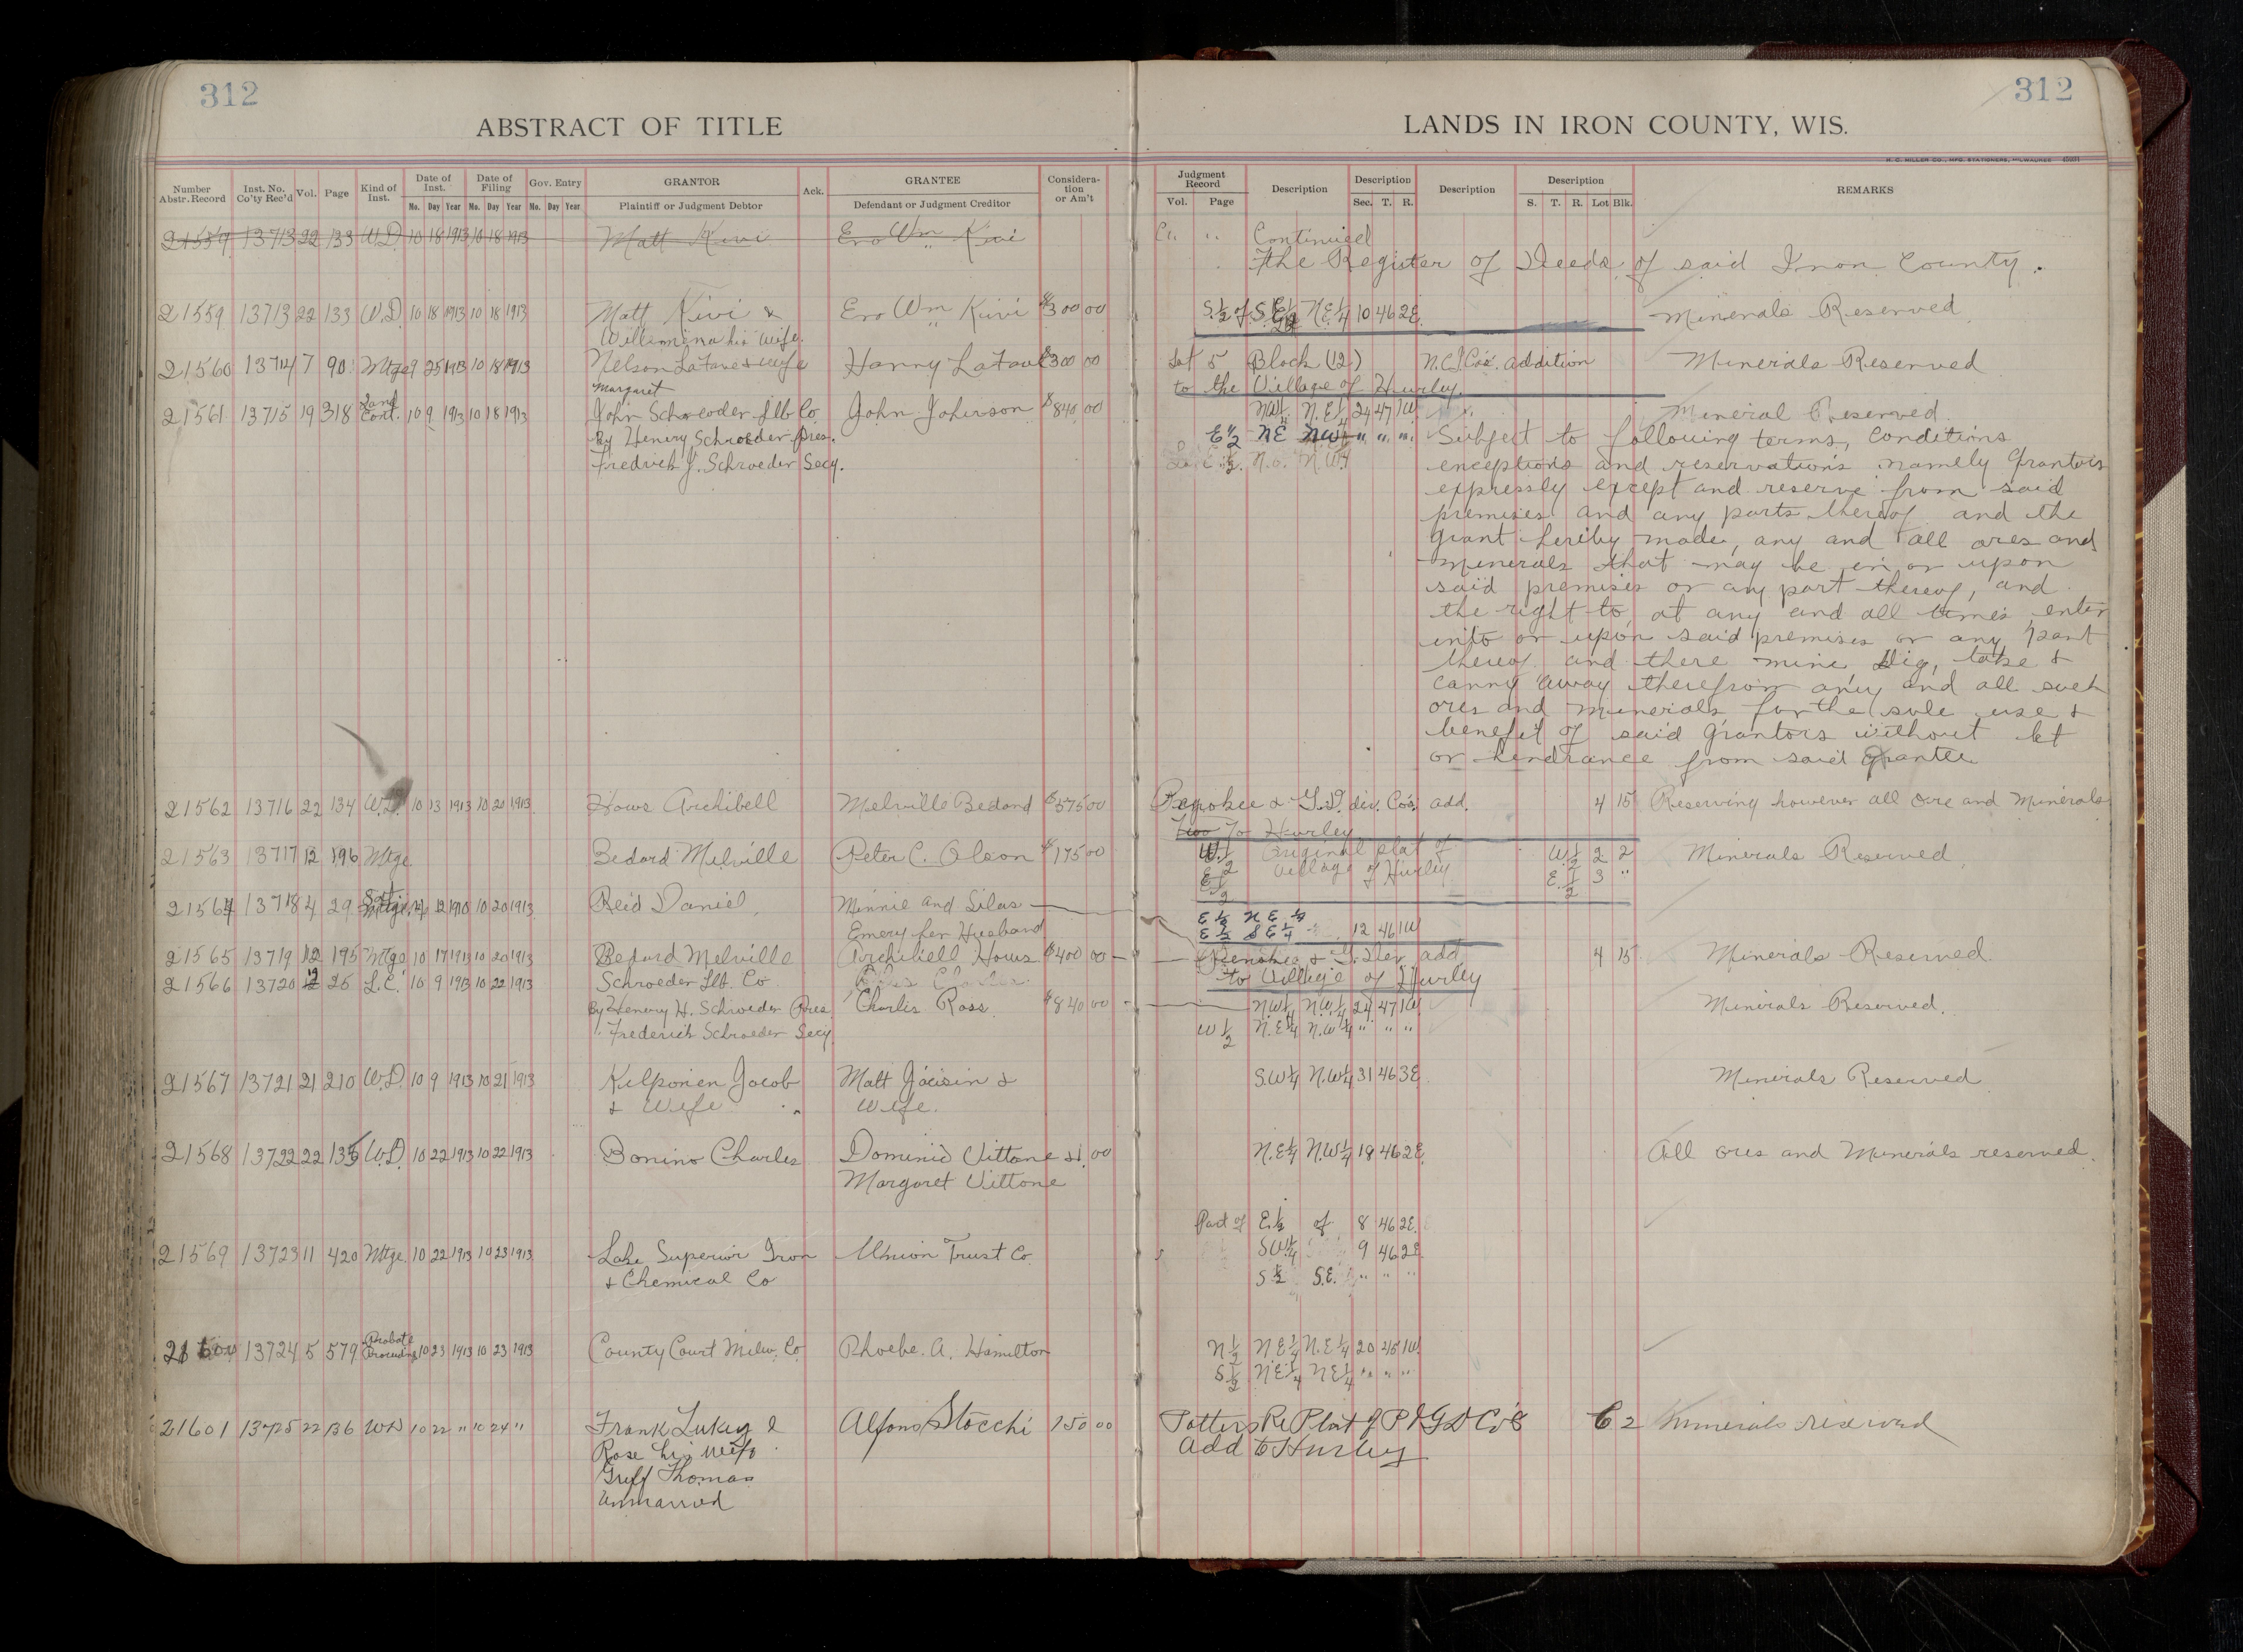 312
ABSTRACT OF TITLE
312
LANDS IN IRON COUNTY, WIS.
H. C. MILLER CO., MFG. STATIONERS, MILWAUKEE
Number Abstr. Record Inst. No. Co'ty Rec'd Vol. Page Kind of Inst. Date of Inst. Mo. Day Year Date of Filing Mo. Day Year Gov. Entry Mo. Day Year GRANTOR Plaintiff or Judgment Debtor Ack. GRANTEE Defendant or Judgment Creditor Consideration or Am't
Judgment Record Vol. Page Description Description Sec. T. R. Description Description S. T. R. Lot Blk. REMARKS
21559 13713 22 133 W.D. 10 18 1913 10 18 1913 Matt Kivi Ero Wm Kivi
Continued
the Register of Deeds of said Iron County.
21559 13713 22 133 W.D. 10 18 1913 10 18 1913 Matt Kivi & Ero Wm Kivi $300 00 S.½ of S.E¼ N.E¼ 10 46 2E. Minerals Reserved
Willimina his wife.
21560 13714 7 90 Mtge 9 25 1913 10 18 1913 Nelson LaFave & wife Harry LaFave $300 00 Lot 5 Block (12) N.C.I.Co's. addition Minerals Reserved
Margaret to the Village of Hurley.
21561 13715 19 318 Land Cont. 10 9 1913 10 18 1913 John Schroeder Lb Co John Johnson $840 00 N.W¼ N.E¼ 24 47 1W Mineral Reserved.
By Henery Schroeder Pres. E½ NE NW¼ " " " Subject to following terms, conditions
Fredrich J. Schroeder Secy. exceptions and reservations namely Grantors
expressly except and reserve from said
premises and any parts thereof and the
grant hereby made, any and all ores and
minerals that may be in or upon
said premises or any part thereof, and
the right to, at any and all times enter
into or upon said premises or any part
thereof and there mine dig, take &
carry away therefrom any and all such
ores and minerals for the sole use &
benefit of said grantors without let
or hendrance from said Grantee
21562 13716 22 134 W.D. 10 13 1913 10 20 1913 Hows Archibell Melville Bedard $575 00 & G.D. div. Co's. add. 4 15 Reserving however all Ore and Minerals
To Hurley
21563 13717 12 196 Mtge Bedard Melville Peter C. Olson $175 00 W.½ Original plat of W½ 2 2 Minerals Reserved.
E½ Village of Hurley E.½ 3 "
21564 13718 4 29 Reid Daniel Minnie and Silas
12 1910 10 20 1913 Emery her Husband E½ N E ¼
E½ S E ¼ 12 46 1W
21565 13719 12 195 Mtge 10 17 1913 10 20 1913 Bedard Melville Archibell Hows $400 00 Penokee & G. Dev. add 4 15 Minerals Reserved.
to Village of Hurley
21566 13720 12 25 L.C. 10 9 1913 10 22 1913 Schroeder Lb. Co
By Henery H. Schroeder Pres Charles Ross $840 00 N.W¼ N.W¼ 24 47 1W. Minerals Reserved.
" Frederich Schroeder Secy. W½ N.E¼ N.W¼ " " "
21567 13721 21 210 W.D. 10 9 1913 10 21 1913 Kilponen Jacob Matt Jacisin & S.W¼ N.W¼ 31 46 3E Minerals Reserved
& Wife Wife.
21568 13722 22 135 W.D. 10 22 1913 10 22 1913 Bonino Charles Dominic Vittone $1.00 N.E¼ N.W¼ 18 46 2E All ores and Minerals reserved.
Margaret Vittone
Part of E.½ of 8 46 2E.
21569 13723 11 420 Mtge. 10 22 1913 10 23 1913 Lake Superior Iron Union Trust Co. SW¼ 9 46 2E
& Chemical Co S½ S.E. " " "
13724 5 579 Probate Proceedings 10 23 1913 10 23 1913 County Court Milw. Co Phoebe. A. Hamilton N½ N.E¼ N.E¼ 20 45 1W.
S½ N.E¼ N E¼ " " "
21601 13725 22 136 WD 10 22 " 10 24 " Frank Lukey & Alfons Stocchi 150 00 Potters Re Plat of P & G D Co's 6 2 Minerals reserved
Rose his wife Add to Hurley
Griff Thomas
Unmarried